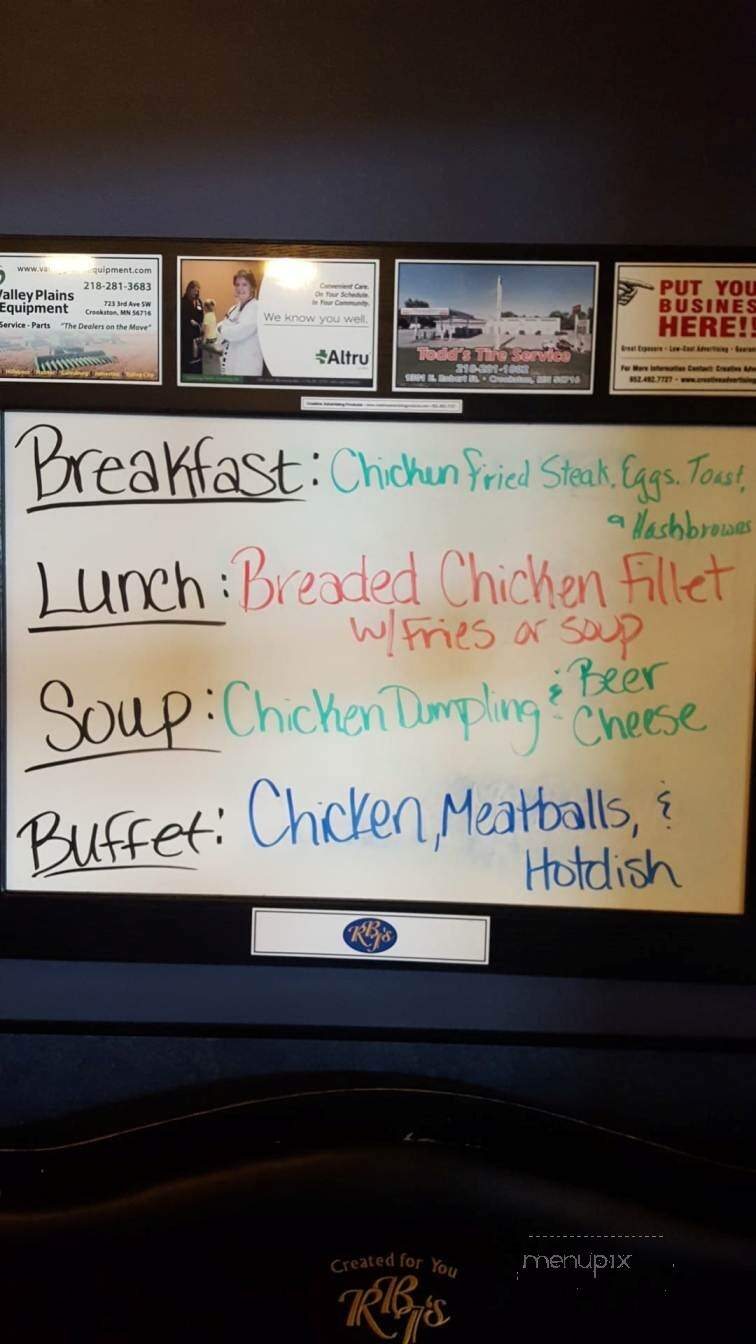 www.va quipment.com
Valley Plains
Equipment
218-281-3683
723 3rd Ave SW
Crookston, MN 56716
Service - Parts "The Dealers on the Move"
Convenient Care.
On Your Schedule.
In Your Community.
We know you well.
Altru
Todd's Tire Service
Crookston, MN 56716
PUT YOU
BUSINES
HERE!!
Great Exposure - Low-Cost Advertising -
For More Information Contact: Creative Adv
952.492.7727 - www.creativeadver
Breakfast: Chicken fried Steak, Eggs, Toast,
& Hashbrowns
Lunch: Breaded Chicken fillet
w/ Fries or soup
Soup: Chicken Dumpling & Beer
Cheese
Buffet: Chicken, Meatballs, &
Hotdish
RBJ's
Created for You
RBJ's
menupix